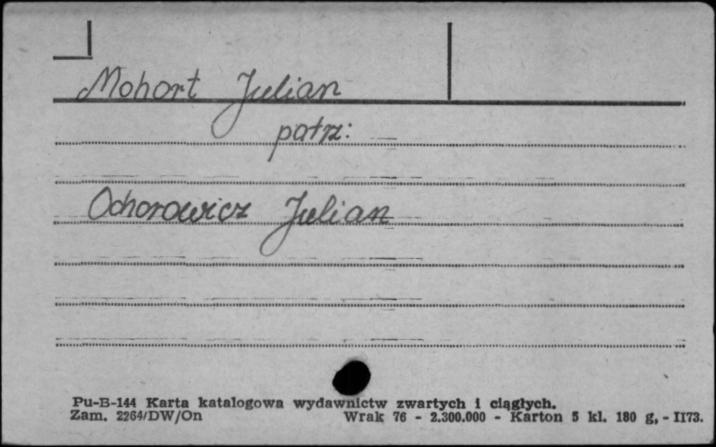 Mohort Julian
patrz:
Ochorowicz Julian
Pu-B-144 Karta katalogowa wydawnictw zwartych i ciągłych.
Zam. 2264/DW/On Wrak 76 - 2.300.000 - Karton 5 kl. 180 g. - II73.